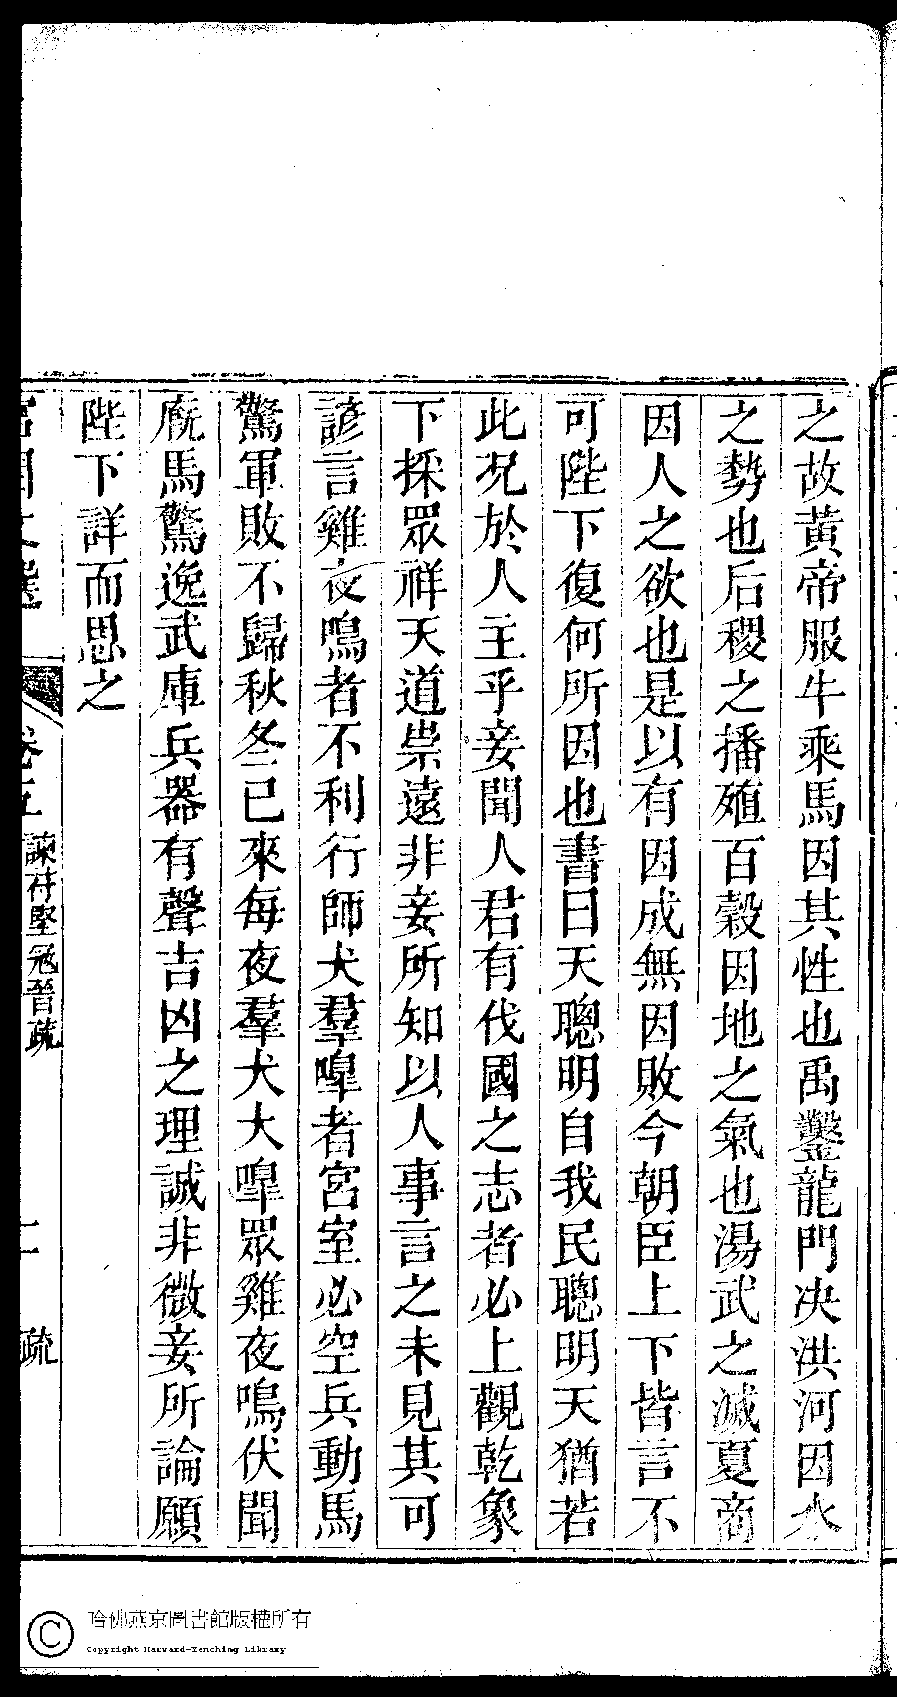 之故黃帝服牛乘馬因其性也禹鑿龍門决洪河因水
之勢也后稷之播殖百穀因地之氣也湯武之滅夏商
因人之欲也是以有因成無因敗今朝臣上下皆言不
可陛下復何所因也書曰天聰明自我民聰明天猶若
此况於人主乎妾聞人君有伐國之志者必上觀乾象
下採眾祥天道崇遠非妾所知以人事言之未見其可
諺言雞夜鳴者不利行師犬羣嘷者宮室必空兵動馬
驚軍敗不歸秋冬已來每夜羣犬大嘷眾雞夜鳴伏聞
廐馬驚逸武庫兵器有聲吉凶之理誠非微妾所論願
陛下詳而思之
宮閨文選 卷五 諫苻堅冦晉疏 疏
哈佛燕京圖書館版權所有
Copyright Harvard-Yenching Library